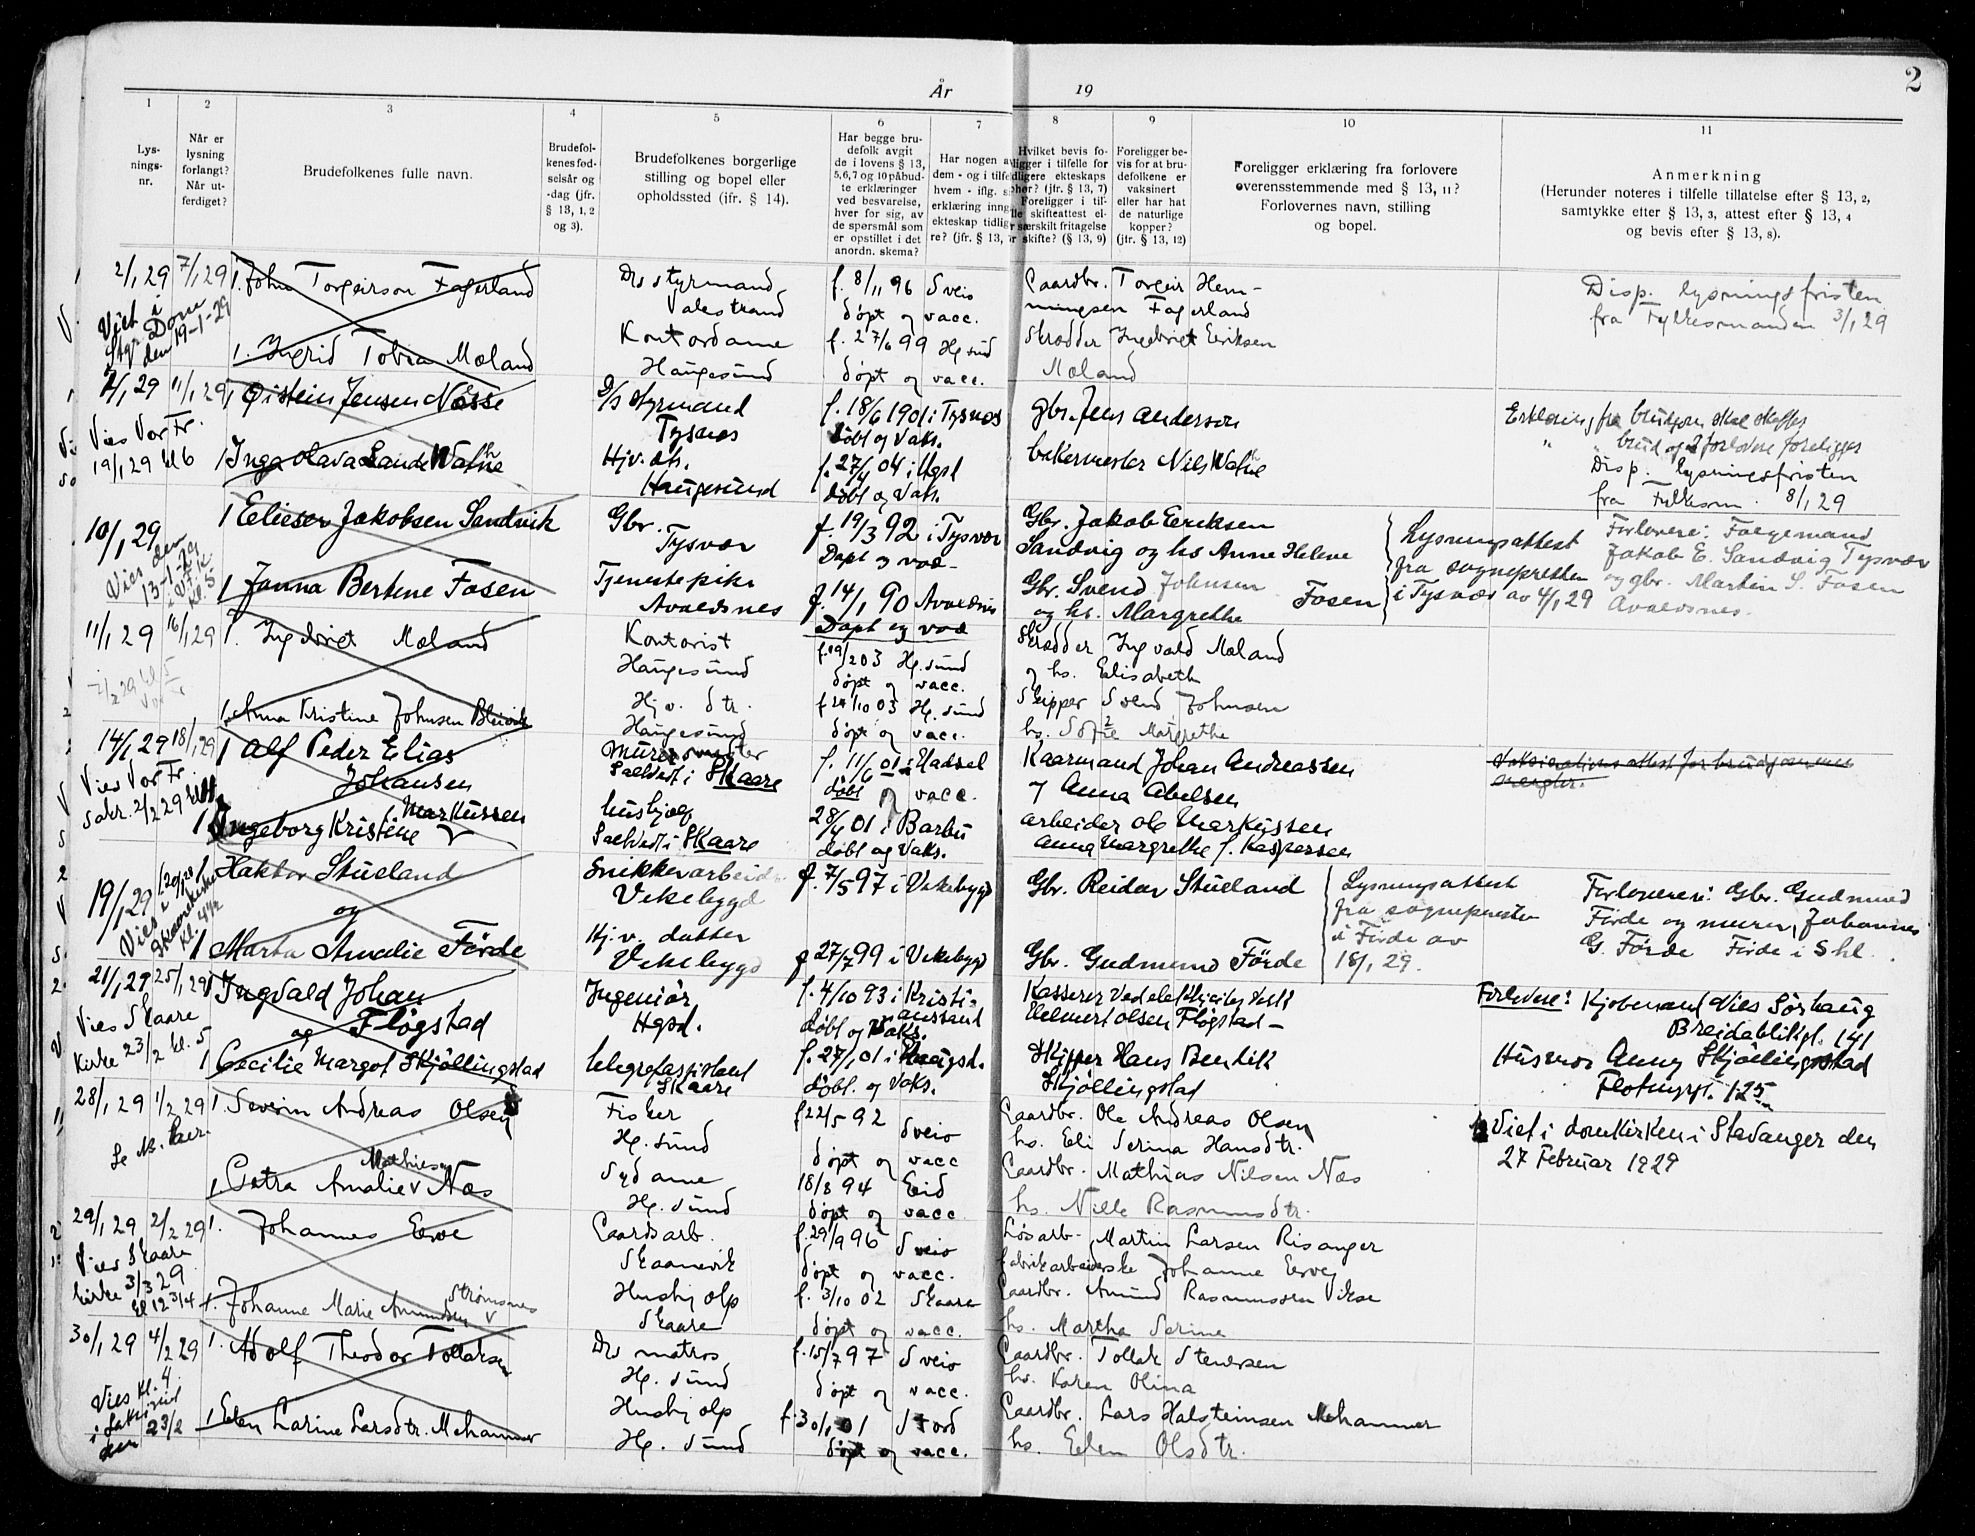 2
År 19
1 2 3 4 5 6 7 8 9 10 11
Lys-
nings-
nr.
Når er
lysning
forlangt?
Når ut-
ferdiget?
Brudefolkenes fulle navn.
Brudefol-
kenes fød-
selsår og
-dag (jfr.
§ 13, 1, 2
og 3).
Brudefolkenes borgerlige
stilling og bopel eller
opholdssted (jfr. § 14).
Har begge bru-
defolk avgit
de i lovens § 13,
5, 6, 7 og 10 påbud-
te erklæringer
ved besvarelse,
hver for sig, av
de spørsmål som
er opstillet i det
anordn. skema?
Har nogen a
dem - og i tilfe
hvem - iflg. s
erklæring inng
ekteskap tidlig
re? (jfr. § 13,
Hvilket bevis fo-
ligger i tilfelle for
dligere ekteskaps
phør? (jfr. § 13, 7)
Foreligger i til-
lle skifteattest el-
r særskilt fritagelse
r skifte? (§ 13, 9)
Foreligger be-
vis for at bru-
defolkene er
vaksinert
eller har hat
de naturlige
kopper?
(jfr. § 13, 12)
Foreligger erklæring fra forlovere
overensstemmende med § 13, 11?
Forlovernes navn, stilling
og bopel.
Anmerkning
(Herunder noteres i tilfelle tillatelse efter § 13, 2,
samtykke efter § 13, 3, attest efter § 13, 4
og bevis efter § 13, 8).
2/1 29 7/1 29 1. John Torgeirson Fagerland Ds styrmand f. 8/11 96 Sveio Gaardbr. Torgeir Hem- Disp. lysningsfristen
Viet i Valestrand døpt og vacc. mingsen Fagerland fra Fylkesmanden 3/1 29
Stgr. Dome Kontordame f. 27/6 99 Hg.sund Skrædder Ingebrigt Eriksen
den 19-1-29 1. Ingrid Tobia Mæland Haugesund døpt og vacc. Mæland
2/1 29 11/1 29 1 Øistein Jensen Næsse D/S styrmand f. 18/6 1901 i Tysnes gbr. Jens Anderson Erklæring fra brudgom skal skaffes
Vies Vor Fr. Tysnes døbt og Vaks. " brud og 2 forlovere foreligger
19/1 29 kl 6 1 Inga Olava Lande Wathne Hjv. dt. f. 27/4 04 i Hgsd bakermester Nils Wathne Disp. lysningsfristen
Haugesund døbt og Vaks. fra Fylkesm. 8/1 29
10/1 29 1 Elieser Jakobsen Sandvik Gbr. f. 19/3 92 i Tysvær Gbr. Jakob Eriksen Lysningsattest Forlovere: Færgemand
Vies den Tysvær Døpt og vac- Sandvig og hs Anne Helene fra sognepresten Jakob E. Sandvig Tysvær
13-1-29 1 Janna Bertine Fosen Tjenestepike f. 14/1 90 Avaldsnes Gbr. Svend Johnsen Fosen i Tysvær av 4/1 29 og gbr. Martin S. Fosen
kl. 5 Avaldsnes Døpt og vac og hs. Margrethe Avaldsnes.
11/1 29 16/1 29 1. Ingebrigt Mæland Kontorist f. 19/2 03 Hg.sund Skrædder Ingvald Mæland
Haugesund døpt og vacc. og hs. Elisabeth
1. Anna Kristine Johnsen Bleivik Hjv. dtr. f 24/10 03 Hg.sund Skipper Svend Johnsen
Haugesund døpt og vacc. hs. Sofie Margrethe
14/1 29 18/1 29 1 Alf Peder Elias Murermester f. 11/6 01 i Hadsel Kaarmand Johan Andreassen Vaksinationsattest for brudgommen
Vies Vor Fr. Johansen Saltvedt i Skaare døbt og vacc. og Anna Abelsen mangler.
1 Ingeborg Kristine Markussen hushjælp 28/4 01 i Barbu arbeider Ole Markussen
Saltvedt i Skaare døbt og Vaks. Anna Margrethe f. Kaspersen
19/1 29 20/1 29 Haktor Stueland Snikkerarbeider f. 7/5 97 i Vikebygd Gbr. Reidar Stueland Lysningsattest Forlovere: Gbr. Gudmund
Vies i og Vikebygd fra sogneprester Förde og murer Johannes
Skaarekirke 1 Marta Amalie Förde Hj.v. datter f 27/7 99 i Vikebygd Gbr. Gudmund Förde i Förde av G. Förde Förde i Shl.
kl. 4 1/2 Vikebygd 18/1 29.
21/1 29 25/1 29 1 Ingvald Johan Ingeniør f. 4/10 93 i Kristi- Kasserer ved elektricitetsverk Forlovere: Kjøbmand Nils Sørhaug
Vies Skaare og Fløgstad Hgsd. ansand døbt og Vaks. Helmert Olsen Fløgstad - Breidablikgt. 141
Kirke 23/2 kl. 5 1 Cecilie Margot Skjøllingstad telegrafassistent f. 27/1 01 i Haugsd. Skipper Hans Bendik Husmor Anny Skjøllingstad
Skaare døbt. og Vaks. Skjøllingstad Flotmyrgt. 125
28/1 29 1/2 29 1 Severin Andreas Olsen Fisker f 22/5 92 Sveio Gaardbr. Ole Andreas Olsen Viet i domkirken i Stavanger den
Hg.sund døpt og vacc hs. Eli Serina Hansdtr. 27 Februar 1929
1. Petra Amalie Mathiesen Næs Sydame 18/8 94 Eid Gaardbr. Mathias Nilsen Næs
Hg. sund døpt og vacc. hs. Nille Rasmusdtr.
29/1 29 2/2 29 1. Johannes Erve Gaardsarb. f. 29/9 96 Sveio Løsarb. Martin Larsen Risanger
Vies Skaare Skaanevik døpt og vacc. fabrikarbeiderske Johanne Erve
kirke 3/3 29 1. Johanne Marie Amundsen Strømsnes Hushjælp f. 3/10 02 Skaare Gaardbr. Amund Rasmussen Vikse
kl 12 3/4 Skaare døpt og vacc. hs. Martha Serine
30/1 29 4/2 29 1. Adolf Theodor Tollaksen Ds matros f. 15/7 97 Sveio Gaardbr. Tollak Stenersen
Vies kl. 4 Hg. sund døpt og vacc. hs. Karen Olina
23/2 1 Elen Larine Larsdtr. Mehammer Hushjælp f. 30/1 01 Stord Gaardbr. Lars Halsteinsen Mehammer
Hg. sund døpt og vacc. hs. Elen Olsdtr.